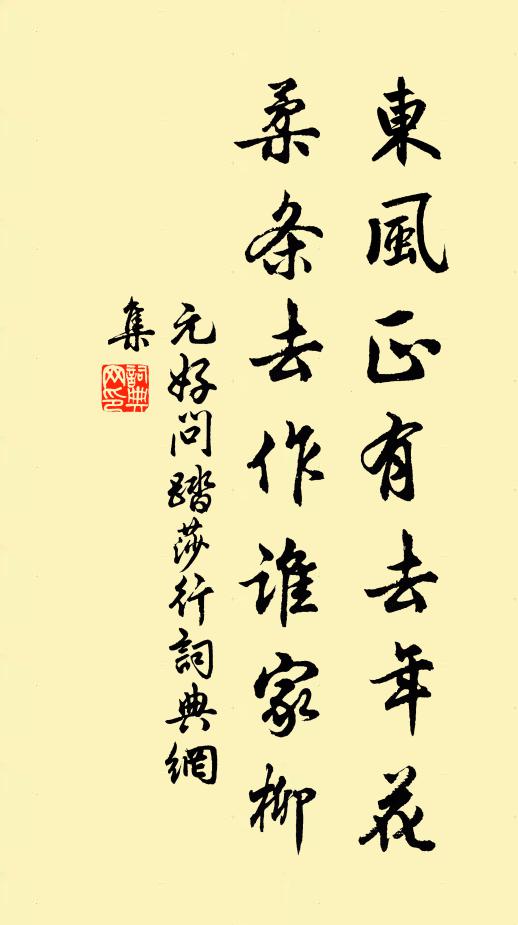 東風正有去年花
柔条去作誰家柳
元好問踏莎行詞典網
集
詞典網印